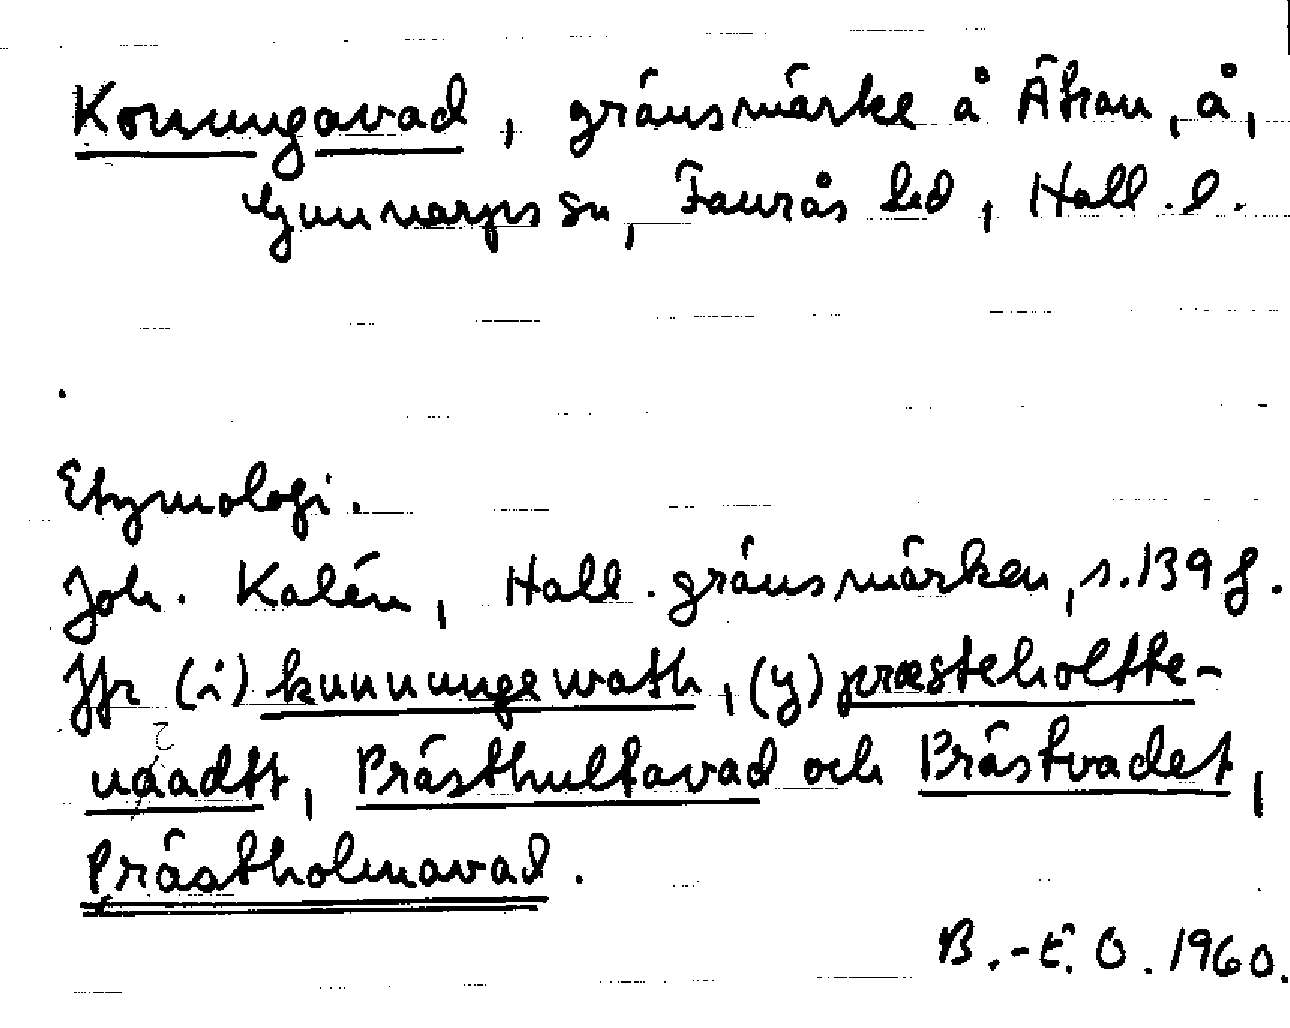 Konungavad, gränsmärke å Ätran, å,
Gunnarps sn, Faurås hd, Hall. l.
Etymologi.
Joh. Kalén, Hall. gränsmärken, s. 139 f.
Jfr (i) kunnungewath, (y) præsteholtte-
uaadtt, Prästhultavad och Brästvadet,
Prästholmavad.
B.-E. O. 1960.